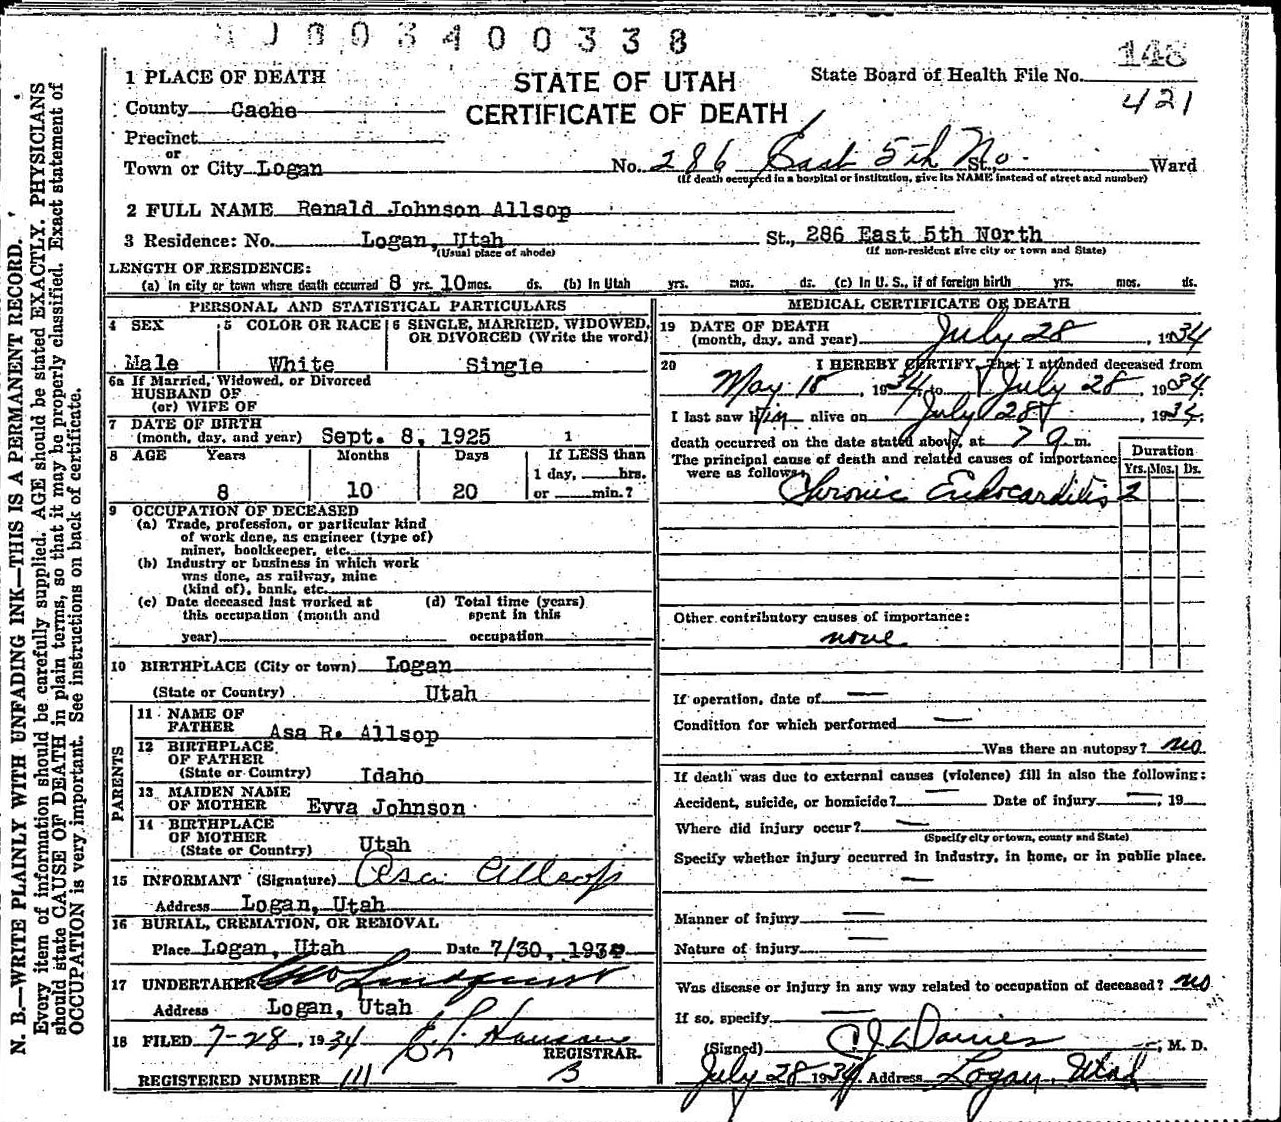 00400338
148
1 PLACE OF DEATH
STATE OF UTAH
State Board of Health File No.
421
County Cache
CERTIFICATE OF DEATH
Precinct
or
Town or City Logan No. 286 East 5th No. St., Ward
(If death occurred in a hospital or institution, give its NAME instead of street and number)
2 FULL NAME Renald Johnson Allsop
3 Residence: No. Logan, Utah St., 286 East 5th North
(Usual place of abode) (If non-resident give city or town and State)
LENGTH OF RESIDENCE:
(a) In city or town where death occurred 8 yrs. 10 mos. ds. (b) In Utah yrs. mos. ds. (c) In U. S., if of foreign birth yrs. mos. ds.
PERSONAL AND STATISTICAL PARTICULARS
4 SEX 5 COLOR OR RACE 6 SINGLE, MARRIED, WIDOWED,
OR DIVORCED (Write the word)
Male White Single
6a If Married, Widowed, or Divorced
HUSBAND OF
(or) WIFE OF
7 DATE OF BIRTH
(month, day, and year) Sept. 8, 1925 1
8 AGE Years Months Days If LESS than
1 day, hrs.
8 10 20 or min.?
9 OCCUPATION OF DECEASED
(a) Trade, profession, or particular kind
of work done, as engineer (type of)
miner, bookkeeper, etc.
(b) Industry or business in which work
was done, as railway, mine
(kind of), bank, etc.
(c) Date deceased last worked at (d) Total time (years)
this occupation (month and spent in this
year) occupation
10 BIRTHPLACE (City or town) Logan
(State or Country) Utah
PARENTS
11 NAME OF
FATHER Asa R. Allsop
12 BIRTHPLACE
OF FATHER
(State or Country) Idaho
13 MAIDEN NAME
OF MOTHER Evva Johnson
14 BIRTHPLACE
OF MOTHER
(State or Country) Utah
15 INFORMANT (Signature) Asa Allsop
Address Logan, Utah
16 BURIAL, CREMATION, OR REMOVAL
Place Logan, Utah Date 7/30, 1934
17 UNDERTAKER Lindquist
Address Logan, Utah
18 FILED 7-28, 1934
REGISTRAR.
REGISTERED NUMBER 111 3
MEDICAL CERTIFICATE OF DEATH
19 DATE OF DEATH
(month, day, and year) July 28, 1934
20 I HEREBY CERTIFY, That I attended deceased from
May 18, 1934, to July 28, 1934
I last saw him alive on July 28, 1934.
death occurred on the date stated above, at 7 a m.
The principal cause of death and related causes of importance
were as follows:
Duration
Yrs. Mos. Ds.
Chronic Endocarditis 2
Other contributory causes of importance:
none
If operation, date of —
Condition for which performed —
Was there an autopsy? no
If death was due to external causes (violence) fill in also the following:
Accident, suicide, or homicide? — Date of injury —, 19
Where did injury occur? —
(Specify city or town, county and State)
Specify whether injury occurred in industry, in home, or in public place.
—
Manner of injury —
Nature of injury —
Was disease or injury in any way related to occupation of deceased? no
If so, specify —
(Signed) , M. D.
July 28 1934. Address Logan, Utah
N. B.—WRITE PLAINLY WITH UNFADING INK—THIS IS A PERMANENT RECORD.
Every item of information should be carefully supplied. AGE should be stated EXACTLY. PHYSICIANS
should state CAUSE OF DEATH in plain terms, so that it may be properly classified. Exact statement of
OCCUPATION is very important. See instructions on back of certificate.